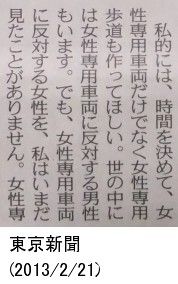 私的には、時間を決めて、女
性専用車両だけでなく女性専用
歩道も作ってほしい。世の中に
は女性専用車両に反対する男性
もいます。でも、女性専用車両
に反対する女性を、私はいまだ
見たことがありません。女性専
東京新聞
(2013/2/21)